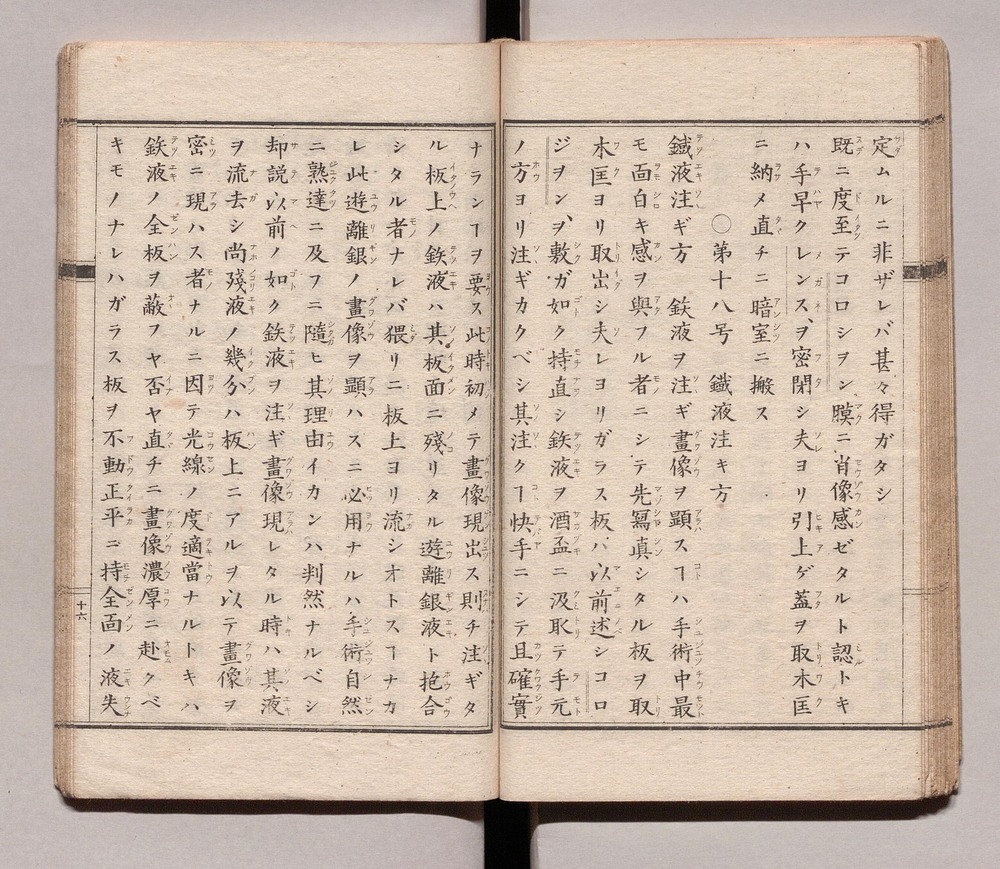 定ムルニ非ザレバ甚々得ガタシ
既ニ度至テコロシヲン膜ニ肖像感ゼタルト認トキ
ハ手早クレンスヲ密閉シ夫ヨリ引上ゲ蓋ヲ取木匡
ニ納メ直チニ暗室ニ搬ス
〇第十八号 鐵液注キ方
鐵液注ギ方 鉄液ヲ注ギ畫像ヲ顕スヿハ手術中最
モ面白キ感ヲ與フル者ニシテ先冩真シタル板ヲ取
木匡ヨリ取出シ夫レヨリガラス板ハ以前述シコロ
ジヲンヲ敷ガ如ク持直シ鉄液ヲ酒盃ニ汲取テ手元
ノ方ヨリ注ギカクベシ其注クヿ快手ニシテ且確實
ナランヿヲ要ス此時初メテ畫像現出ス則チ注ギタ
ル板上ノ鉄液ハ其板面ニ殘リタル遊離銀液ト抱合
シタル者ナレバ猥リニ板上ヨリ流シオトスヿナカ
レ此遊離銀ノ畫像ヲ顕ハスニ必用ナルハ手術自然
ニ熟達ニ及フニ隨ヒ其理由イカンハ判然ナルベシ
却説以前ノ如ク鉄液ヲ注ギ畫像現レタル時ハ其液
ヲ流去シ尚殘液ノ幾分ハ板上ニアルヲ以テ畫像ヲ
密ニ現ハス者ナルニ因テ光線ノ度適當ナルトキハ
鉄液ノ全板ヲ蔽フヤ否ヤ直チニ畫像濃厚ニ赴クベ
キモノナレハガラス板ヲ不動正平ニ持全面ノ液失
十六